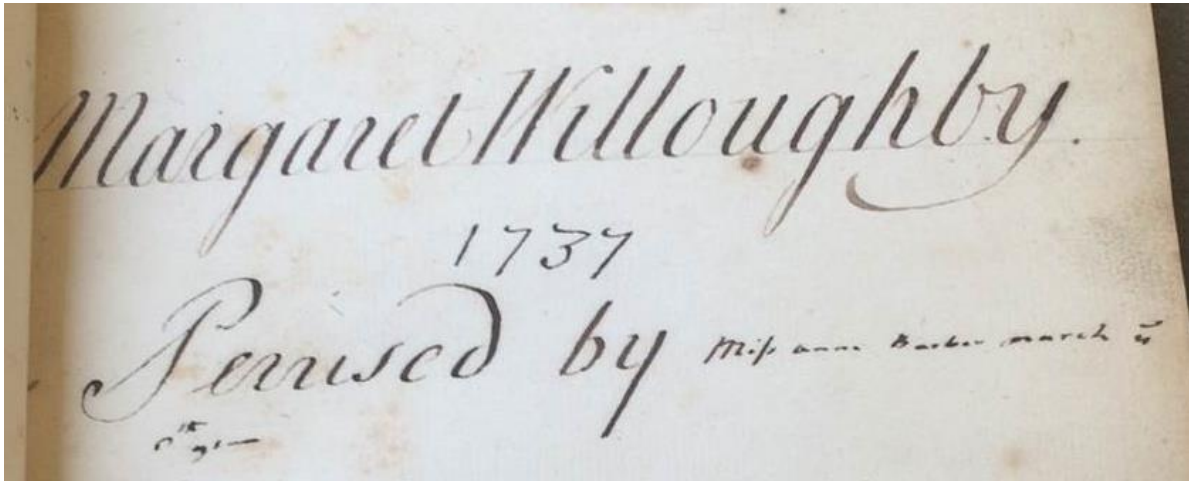 Margaret Willoughby.
1737
Perused by Miſs anne Barber march